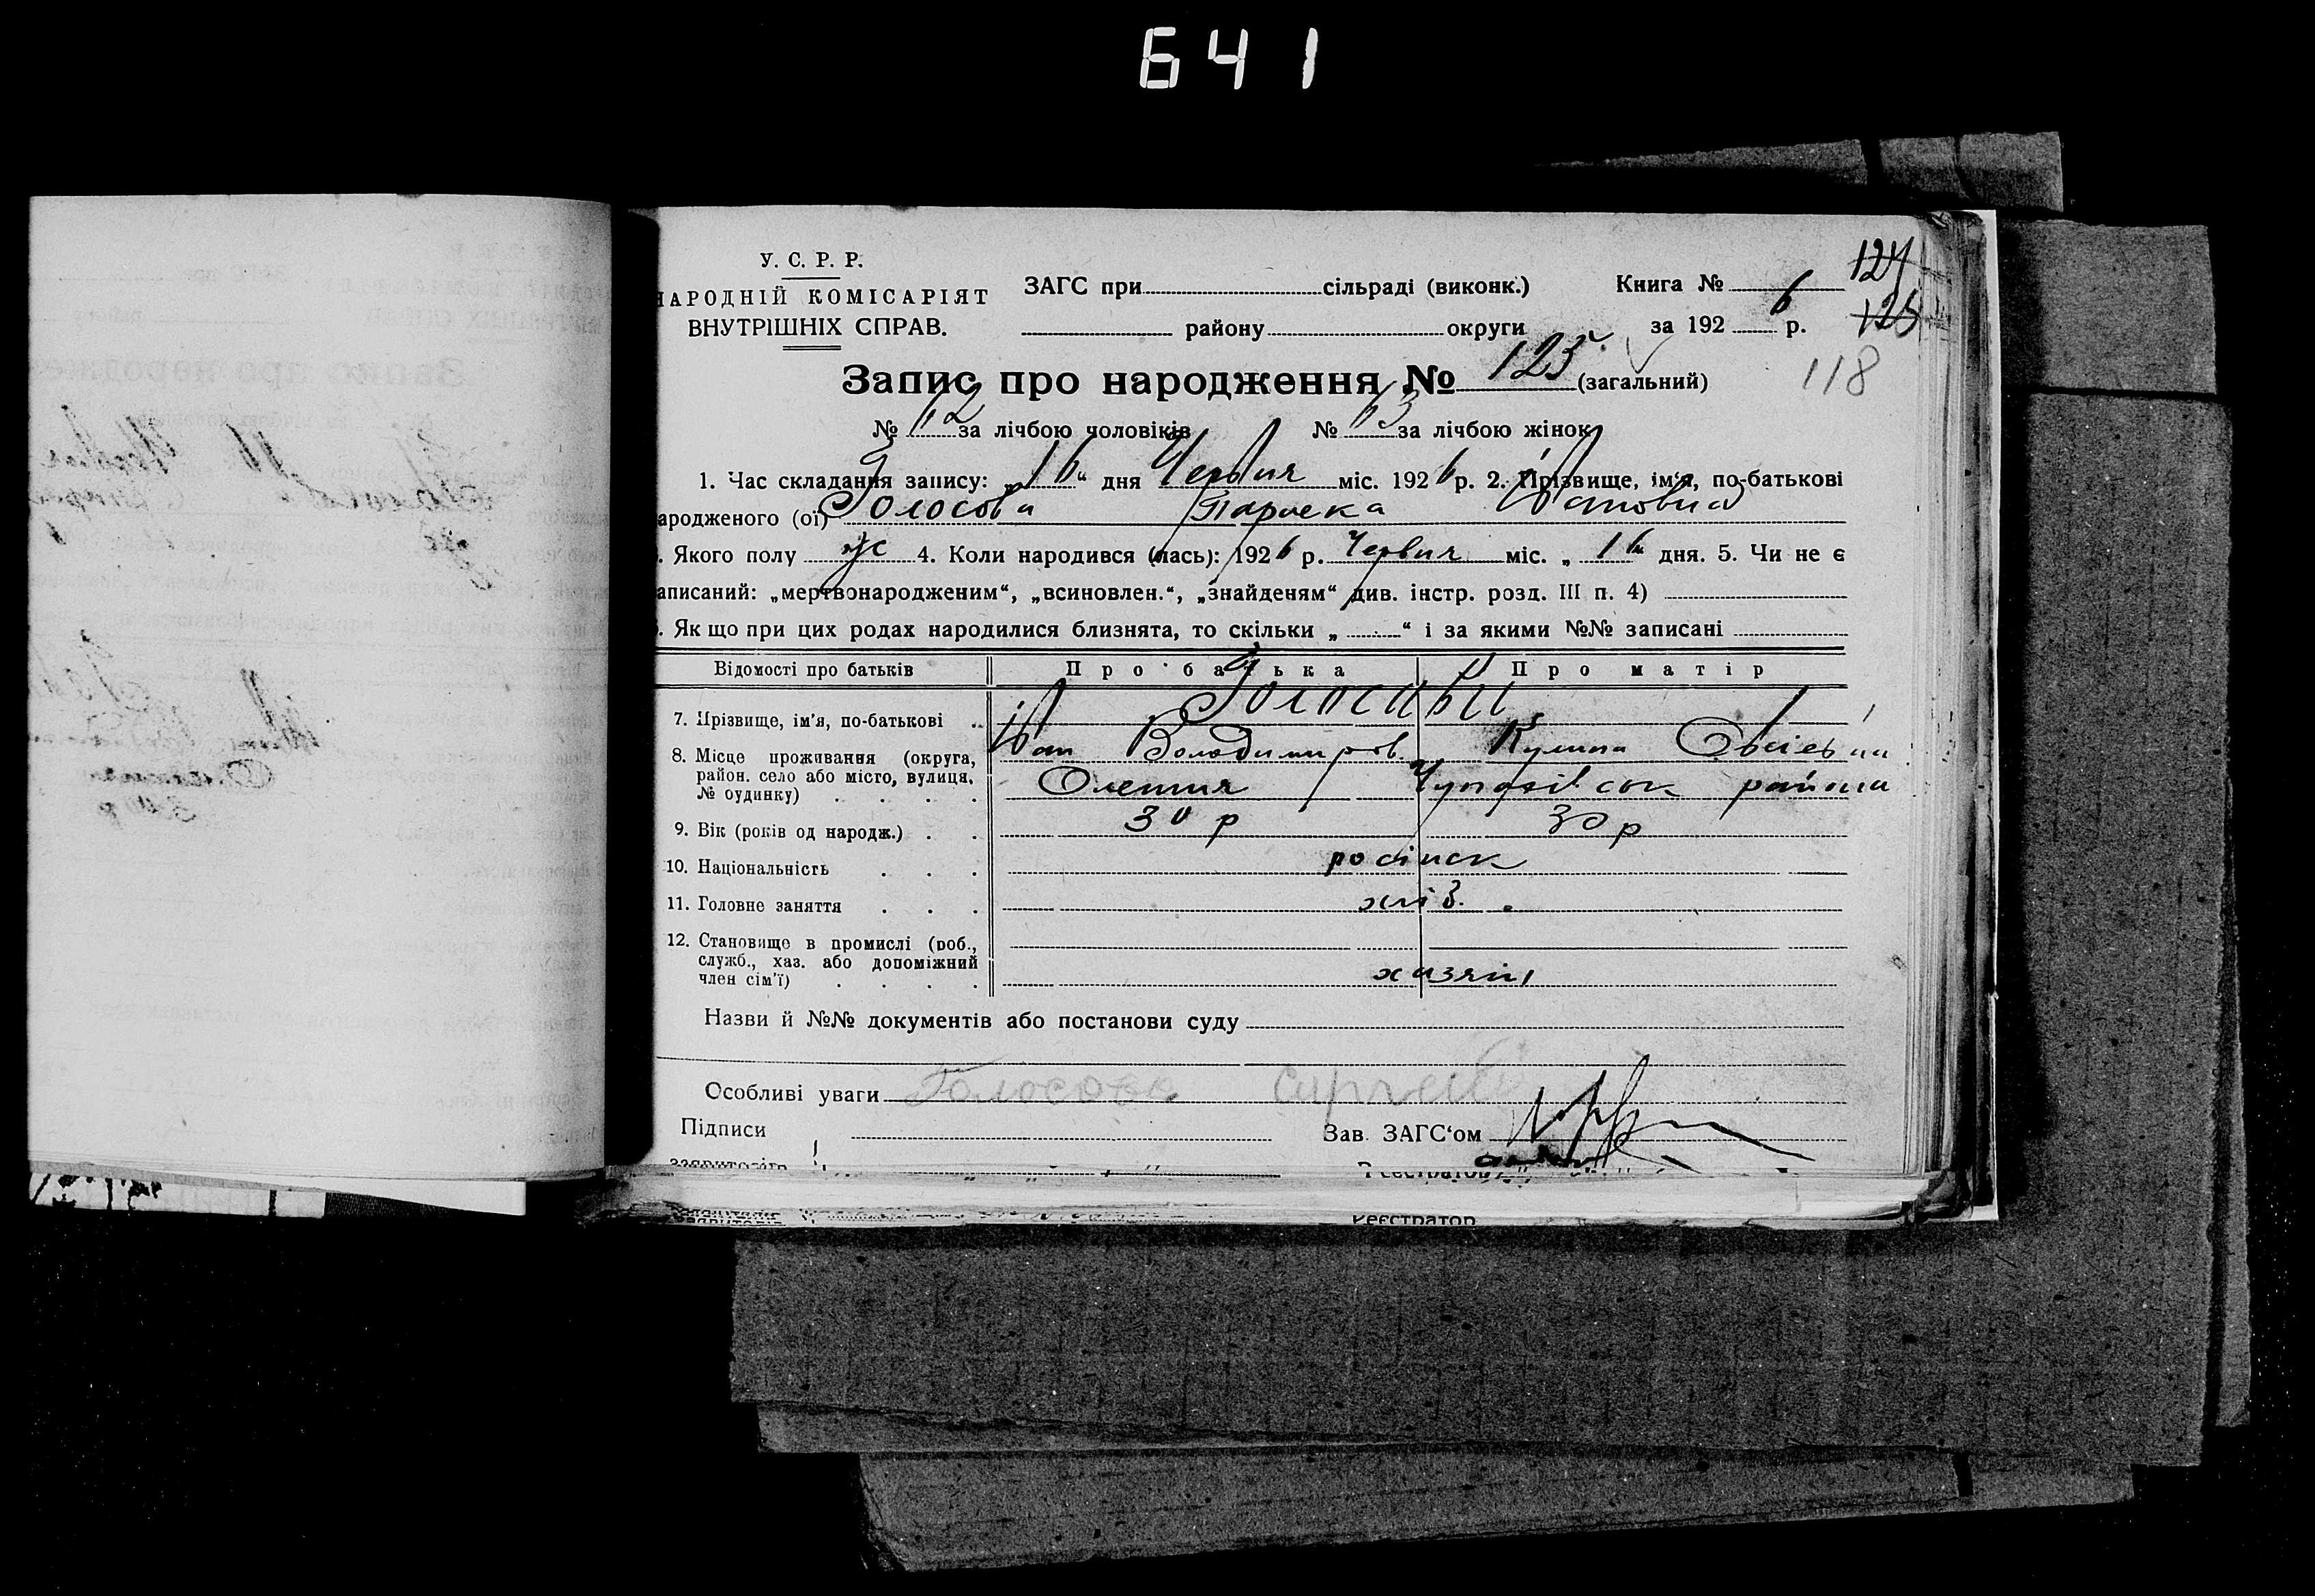 641
У. С. Р. Р.
НАРОДНІЙ КОМІСАРІЯТ
ВНУТРІШНІХ СПРАВ.
ЗАГС при сільраді (виконк.)
району округи
Книга №
за 192 6 р.
124
125
118
Запис про народження № 125 (загальний)
№ 62 за лічбою чоловіків № 63 за лічбою жінок
1. Час складання запису: „16“ дня Червня міс. 1926 р. 2. Прізвище, ім'я, по-батькові
ародженого (ої) Голосова
. Якого полу ж 4. Коли народився (лась): 1926 р. Червня міс. „16“ дня. 5. Чи не є
аписаний: „мертвонародженим“, „всиновлен.“, „знайденям“ див. інстр. розд. III п. 4)
. Якщо при цих родах народилися близнята, то скільки „ “ і за якими №№ записані
Відомості про батьків Про батька Про матір
7. Прізвище, ім'я, по-батькові
Іван Володимиров.
8. Місце проживання (округа, район. село або місто, вулиця, № будинку)
району
9. Вік (років од народж.) 30 р 30 р
10. Національність росінск
11. Головне заняття хліб.
12. Становище в промислі (роб., служб., хаз. або допоміжний член сім'ї)
хазяїн
Назви й №№ документів або постанови суду
Особливі уваги Голосова
Підписи Зав. ЗАГС'ом
Реєстратор